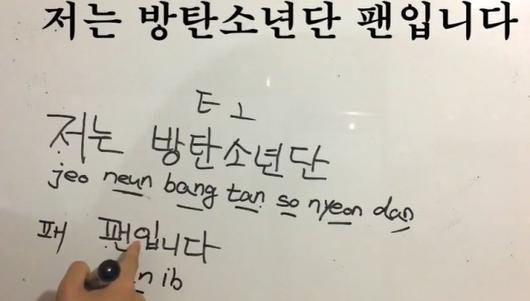 저는 방탄소년단 팬입니다
ㅌ ㅗ
저는 방탄소년단
jeo neun bang tan so nyeon dan
패 팬입니다
n ib